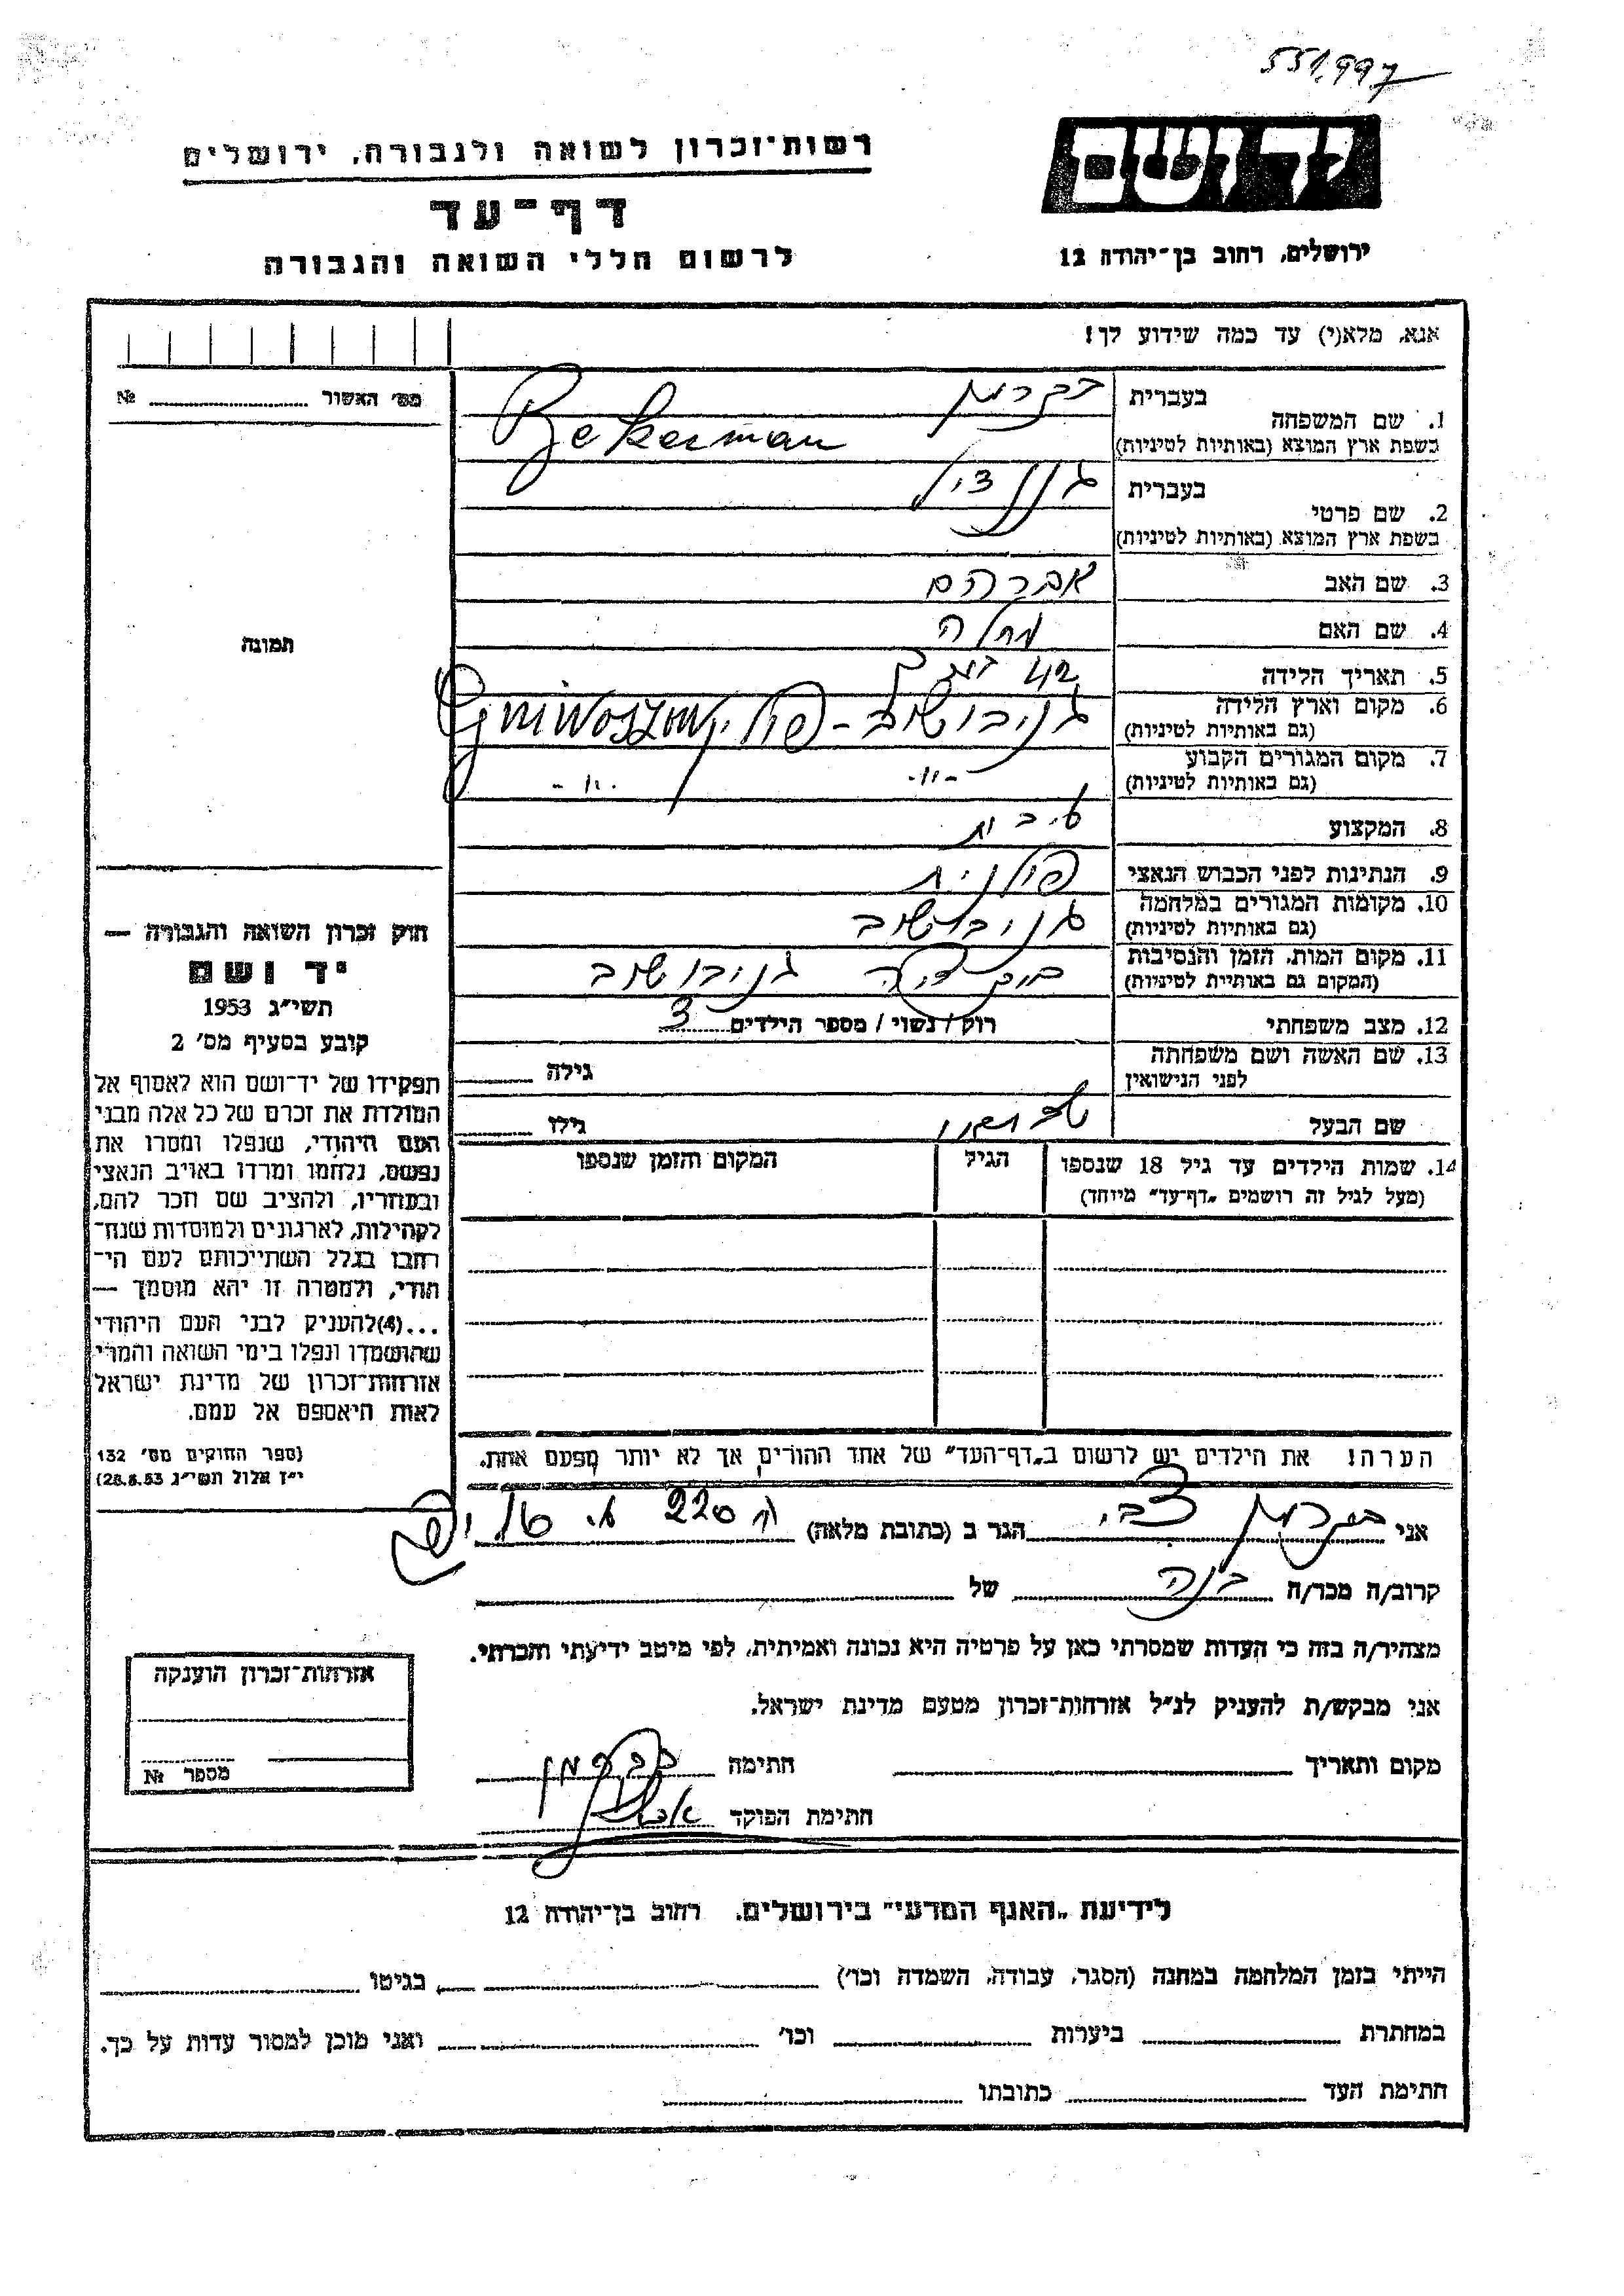 551,997
יד ושם
רשות־זכרון לשואה ולגבורה, ירושלים
דף־עד
ירושלים, רחוב בן־יהודה 12
לרשום חללי השואה והגבורה
אנא, מלא(י) עד כמה שידוע לך!
מס' האשור № 
1. שם המשפחה
בעברית בקרמן
בשפת ארץ המוצא (באותיות לטיניות) Bekerman
2. שם פרטי
בעברית
בשפת ארץ המוצא (באותיות לטיניות)
3. שם האב אברהם
4. שם האם
5. תאריך הלידה 42
6. מקום וארץ הלידה גניבושוב - פולין Gniwoszow
(גם באותיות לטיניות)
7. מקום המגורים הקבוע -"- -"-
(גם באותיות לטיניות)
8. המקצוע
9. הנתינות לפני הכבוש הנאצי פולנית
10. מקומות המגורים במלחמה גניבושוב
(גם באותיות לטיניות)
11. מקום המות, הזמן והנסיבות גניבושוב
(המקום גם באותיית לטיניות)
12. מצב משפחתי רוק / נשוי / מספר הילדים 3
13. שם האשה ושם משפחתה
לפני הנישואין גילה
שם הבעל גילו
14. שמות הילדים עד גיל 18 שנספו הגיל המקום והזמן שנספו
(מעל לגיל זה רושמים „דף־עד" מיוחד)
הערה! את הילדים יש לרשום ב„דף־העד" של אחד ההורים אך לא יותר מפעם אחת.
תמונה
חוק זכרון השואה והגבורה —
יד ושם
תשי"ג 1953
קובע בסעיף מס' 2
תפקידו של יד־ושם הוא לאסוף אל
המולדת את זכרם של כל אלה מבני
העם היהודי, שנפלו ומסרו את
נפשם, נלחמו ומרדו באויב הנאצי
ובעוזריו, ולהציב שם וזכר להם,
לקהילות, לארגונים ולמוסדות שנח־
רבו בגלל השתייכותם לעם הי־
הודי, ולמטרה זו יהא מוסמך —
...(4)להעניק לבני העם היהודי
שהושמדו ונפלו בימי השואה והמרי
אזרחות־זכרון של מדינת ישראל
לאות היאספם אל עמם.
(ספר החוקים מס' 132
י"ז אלול תשי"ג 28.8.53)
אני בקרמן צבי הגר ב (כתובת מלאה) 220
קרוב/ה מכר/ה בנה של
מצהיר/ה בזה כי העדות שמסרתי כאן על פרטיה היא נכונה ואמיתית, לפי מיטב ידיעתי והכרתי.
אני מבקש/ת להעניק לנ"ל אזרחות־זכרון מטעם מדינת ישראל.
מקום ותאריך חתימה בקרמן
חתימת הפוקד
אזרחות־זכרון הוענקה
מספר №
לידיעת „האגף המדעי" בירושלים. רחוב בן־יהודה 12
הייתי בזמן המלחמה במחנה (הסגר, עבודה, השמדה וכו') בגיטו
במחתרת ביערות וכו' ואני מוכן למסור עדות על כך.
חתימת העד כתובתו